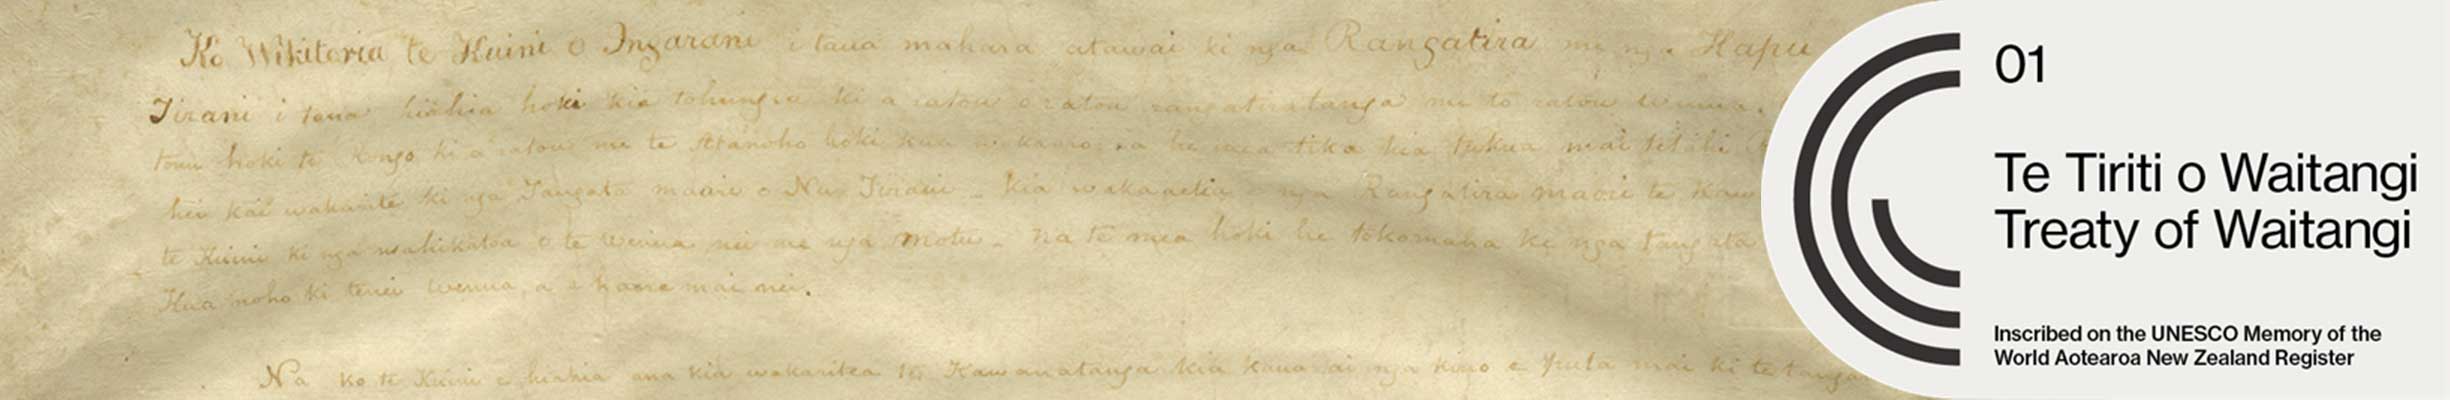 Ko Wikitoria te Kuini o Ingarani i tana mahara atawai ki nga Rangatira me nga Hapu
Tirani i tana hiahia hoki kia tohungia ki a ratou o ratou rangatiratanga me to ratou wenua.
tonu hoki te Rongo ki a ratou me te Atanoho hoki kua wakaaro ia he mea tika kia tukua mai tetahi
hei kai wakarite ki nga Tangata maori o Nu Tirani - kia wakaaetia e nga Rangatira maori te
te Kuini ki nga wahikatoa o te Wenua nei me nga motu - na te mea hoki he tokomaha ke nga tangata
Kua noho ki tenei wenua, a e haere mai nei.
Na ko te Kuini e hiahia ana kia wakaritea te Kawanatanga kia kaua ai nga kino e puta mai ki te
01
Te Tiriti o Waitangi
Treaty of Waitangi
Inscribed on the UNESCO Memory of the
World Aotearoa New Zealand Register